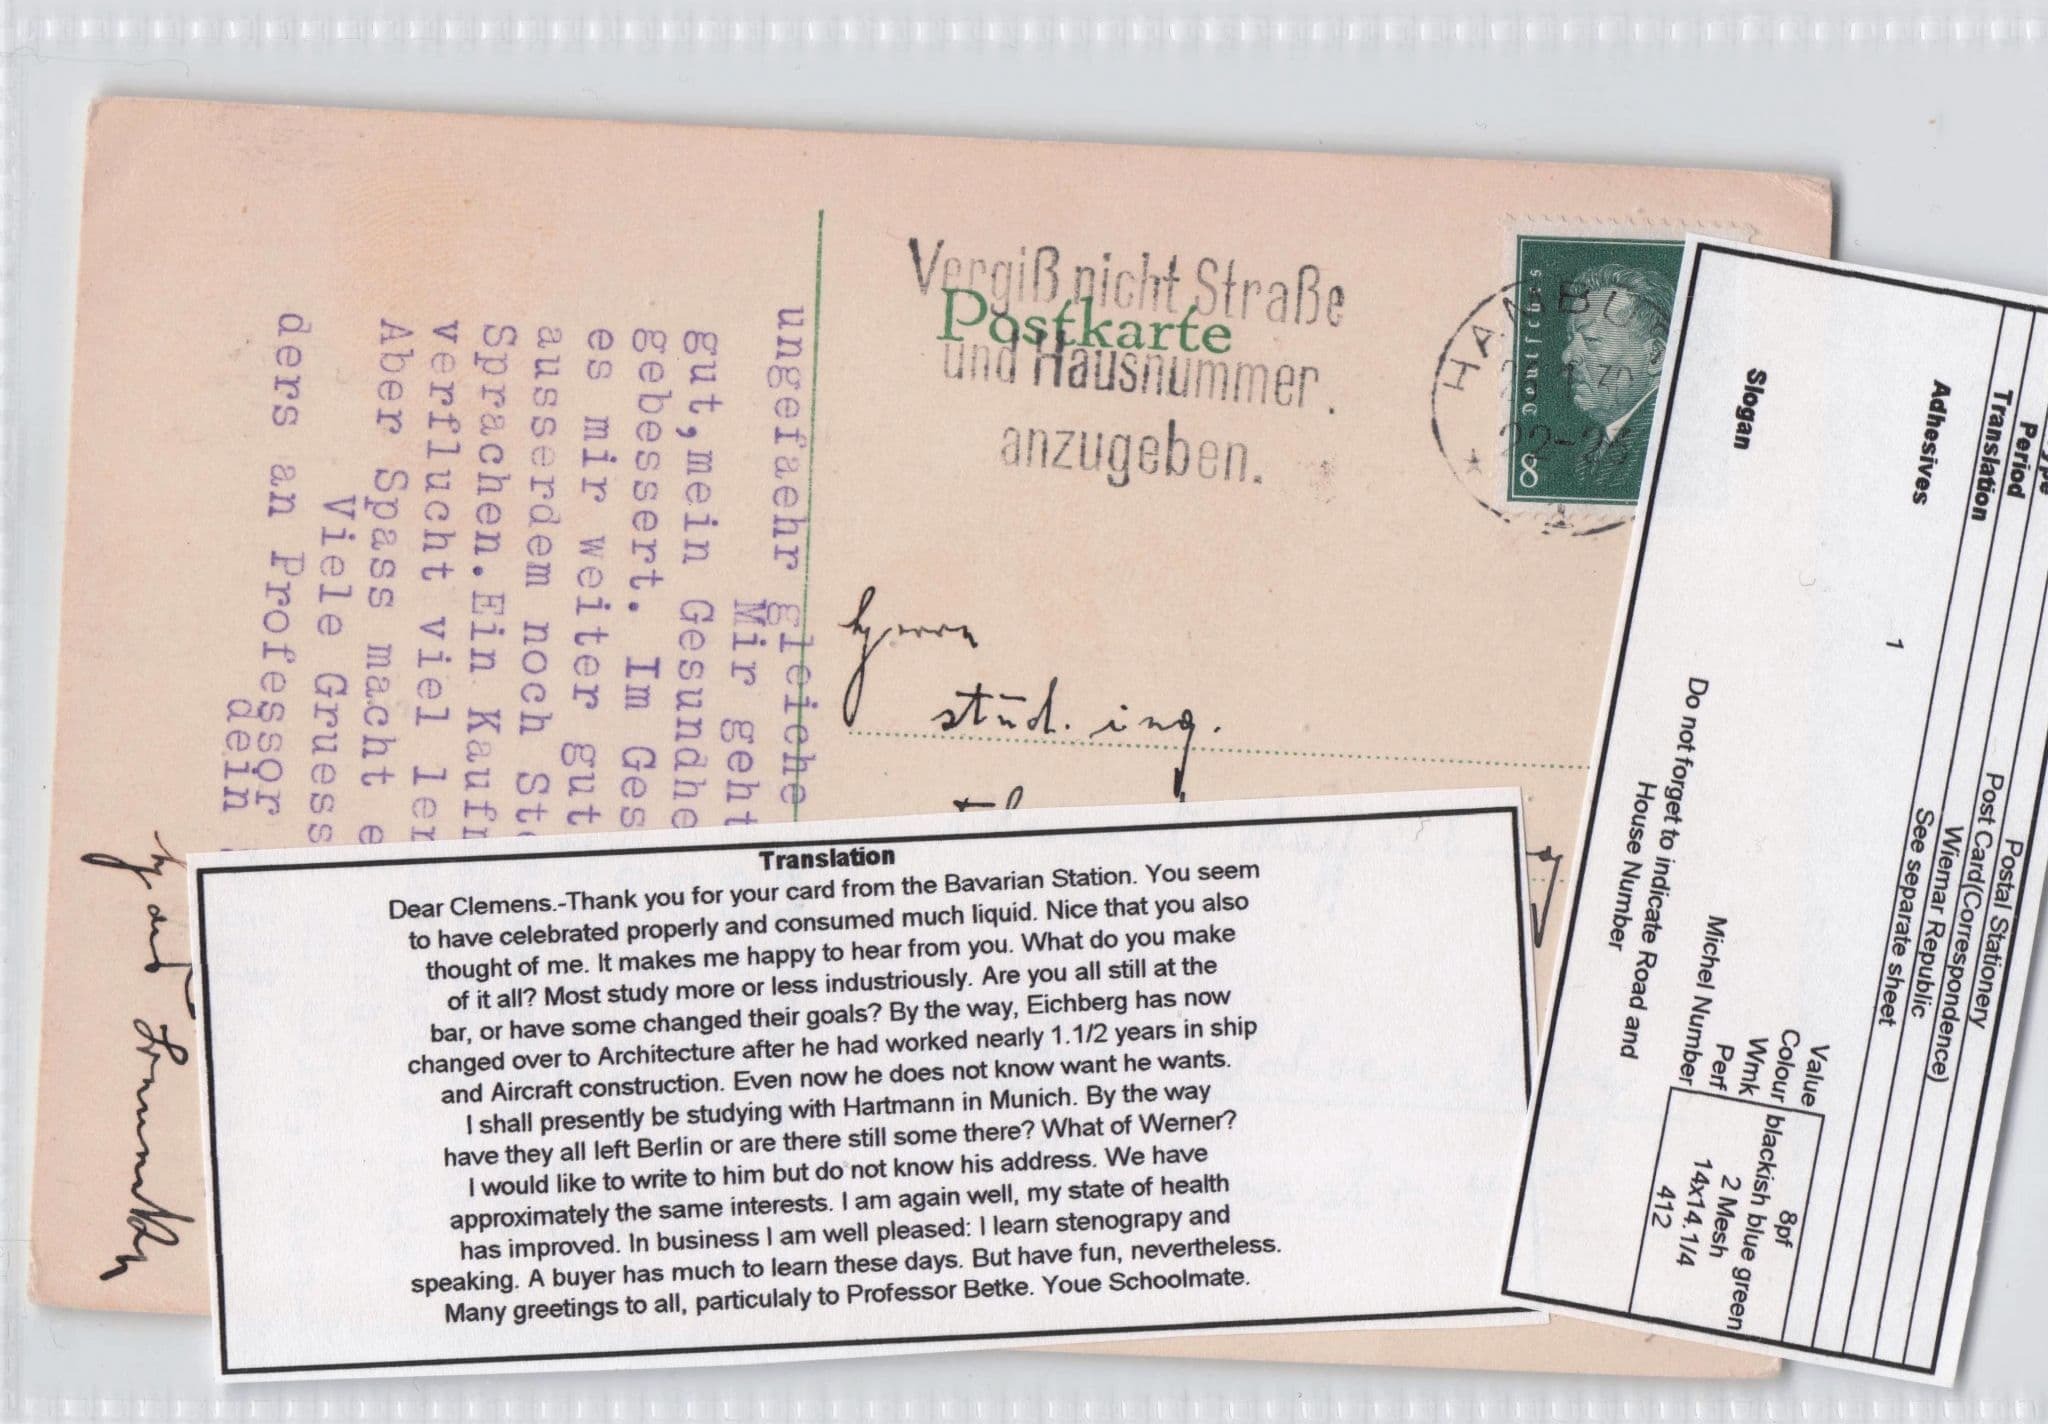 Vergiß nicht Straße
und Hausnummer
anzugeben.
Postkarte
HAMBU
22-23
1
Deutsches
8
Herrn
stud. ing.
ungefaehr gleiche
Mir geht
gut,mein Gesundhe
gebessert. Im Ges
es mir weiter gut
ausserdem noch Ste
Sprachen.Ein Kaufm
verflucht viel ler
Aber Spass macht e
Viele Gruess
ders an Professor
dein
Translation
Dear Clemens.-Thank you for your card from the Bavarian Station. You seem
to have celebrated properly and consumed much liquid. Nice that you also
thought of me. It makes me happy to hear from you. What do you make
of it all? Most study more or less industriously. Are you all still at the
bar, or have some changed their goals? By the way, Eichberg has now
changed over to Architecture after he had worked nearly 1.1/2 years in ship
and Aircraft construction. Even now he does not know want he wants.
I shall presently be studying with Hartmann in Munich. By the way
have they all left Berlin or are there still some there? What of Werner?
I would like to write to him but do not know his address. We have
approximately the same interests. I am again well, my state of health
has improved. In business I am well pleased: I learn stenograpy and
speaking. A buyer has much to learn these days. But have fun, nevertheless.
Many greetings to all, particulaly to Professor Betke. Youe Schoolmate.
Postal Stationery
Post Card(Correspondence)
Period Wiemar Republic
Translation See separate sheet
Adhesives 1
Value 8pf
Colour blackish blue green
Wmk 2 Mesh
Perf 14x14.1/4
Michel Number 412
Slogan Do not forget to indicate Road and
House Number